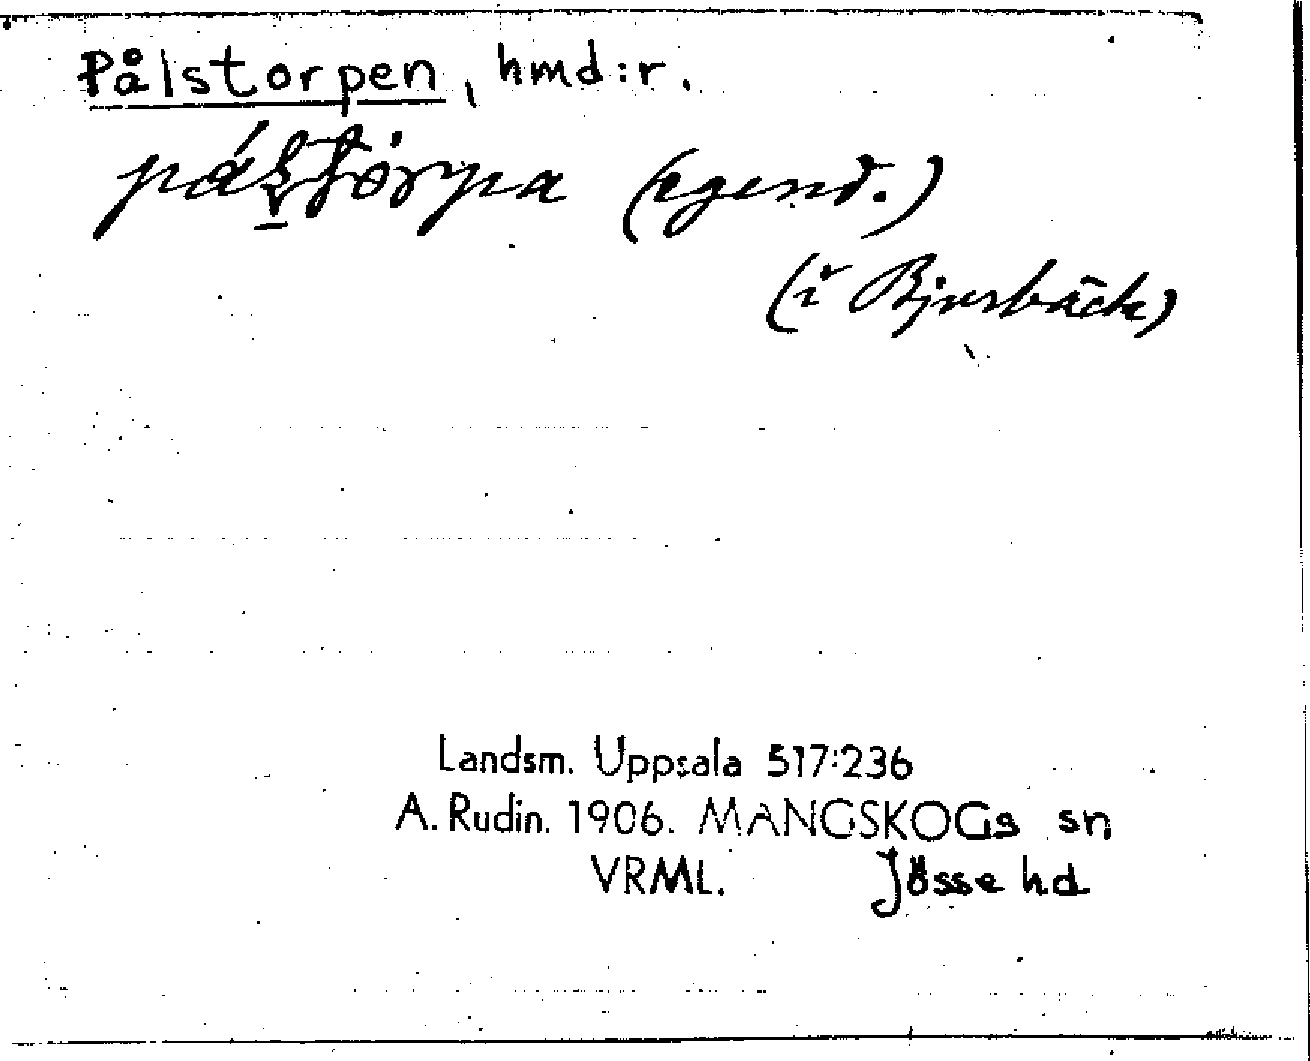 Pålstorpen, hmd:r.
(egend.)
(i Bjursbäck)
Landsm. Uppsala 517:236
A. Rudin. 1906. MANGSKOGs sn
VRML. Jösse hd